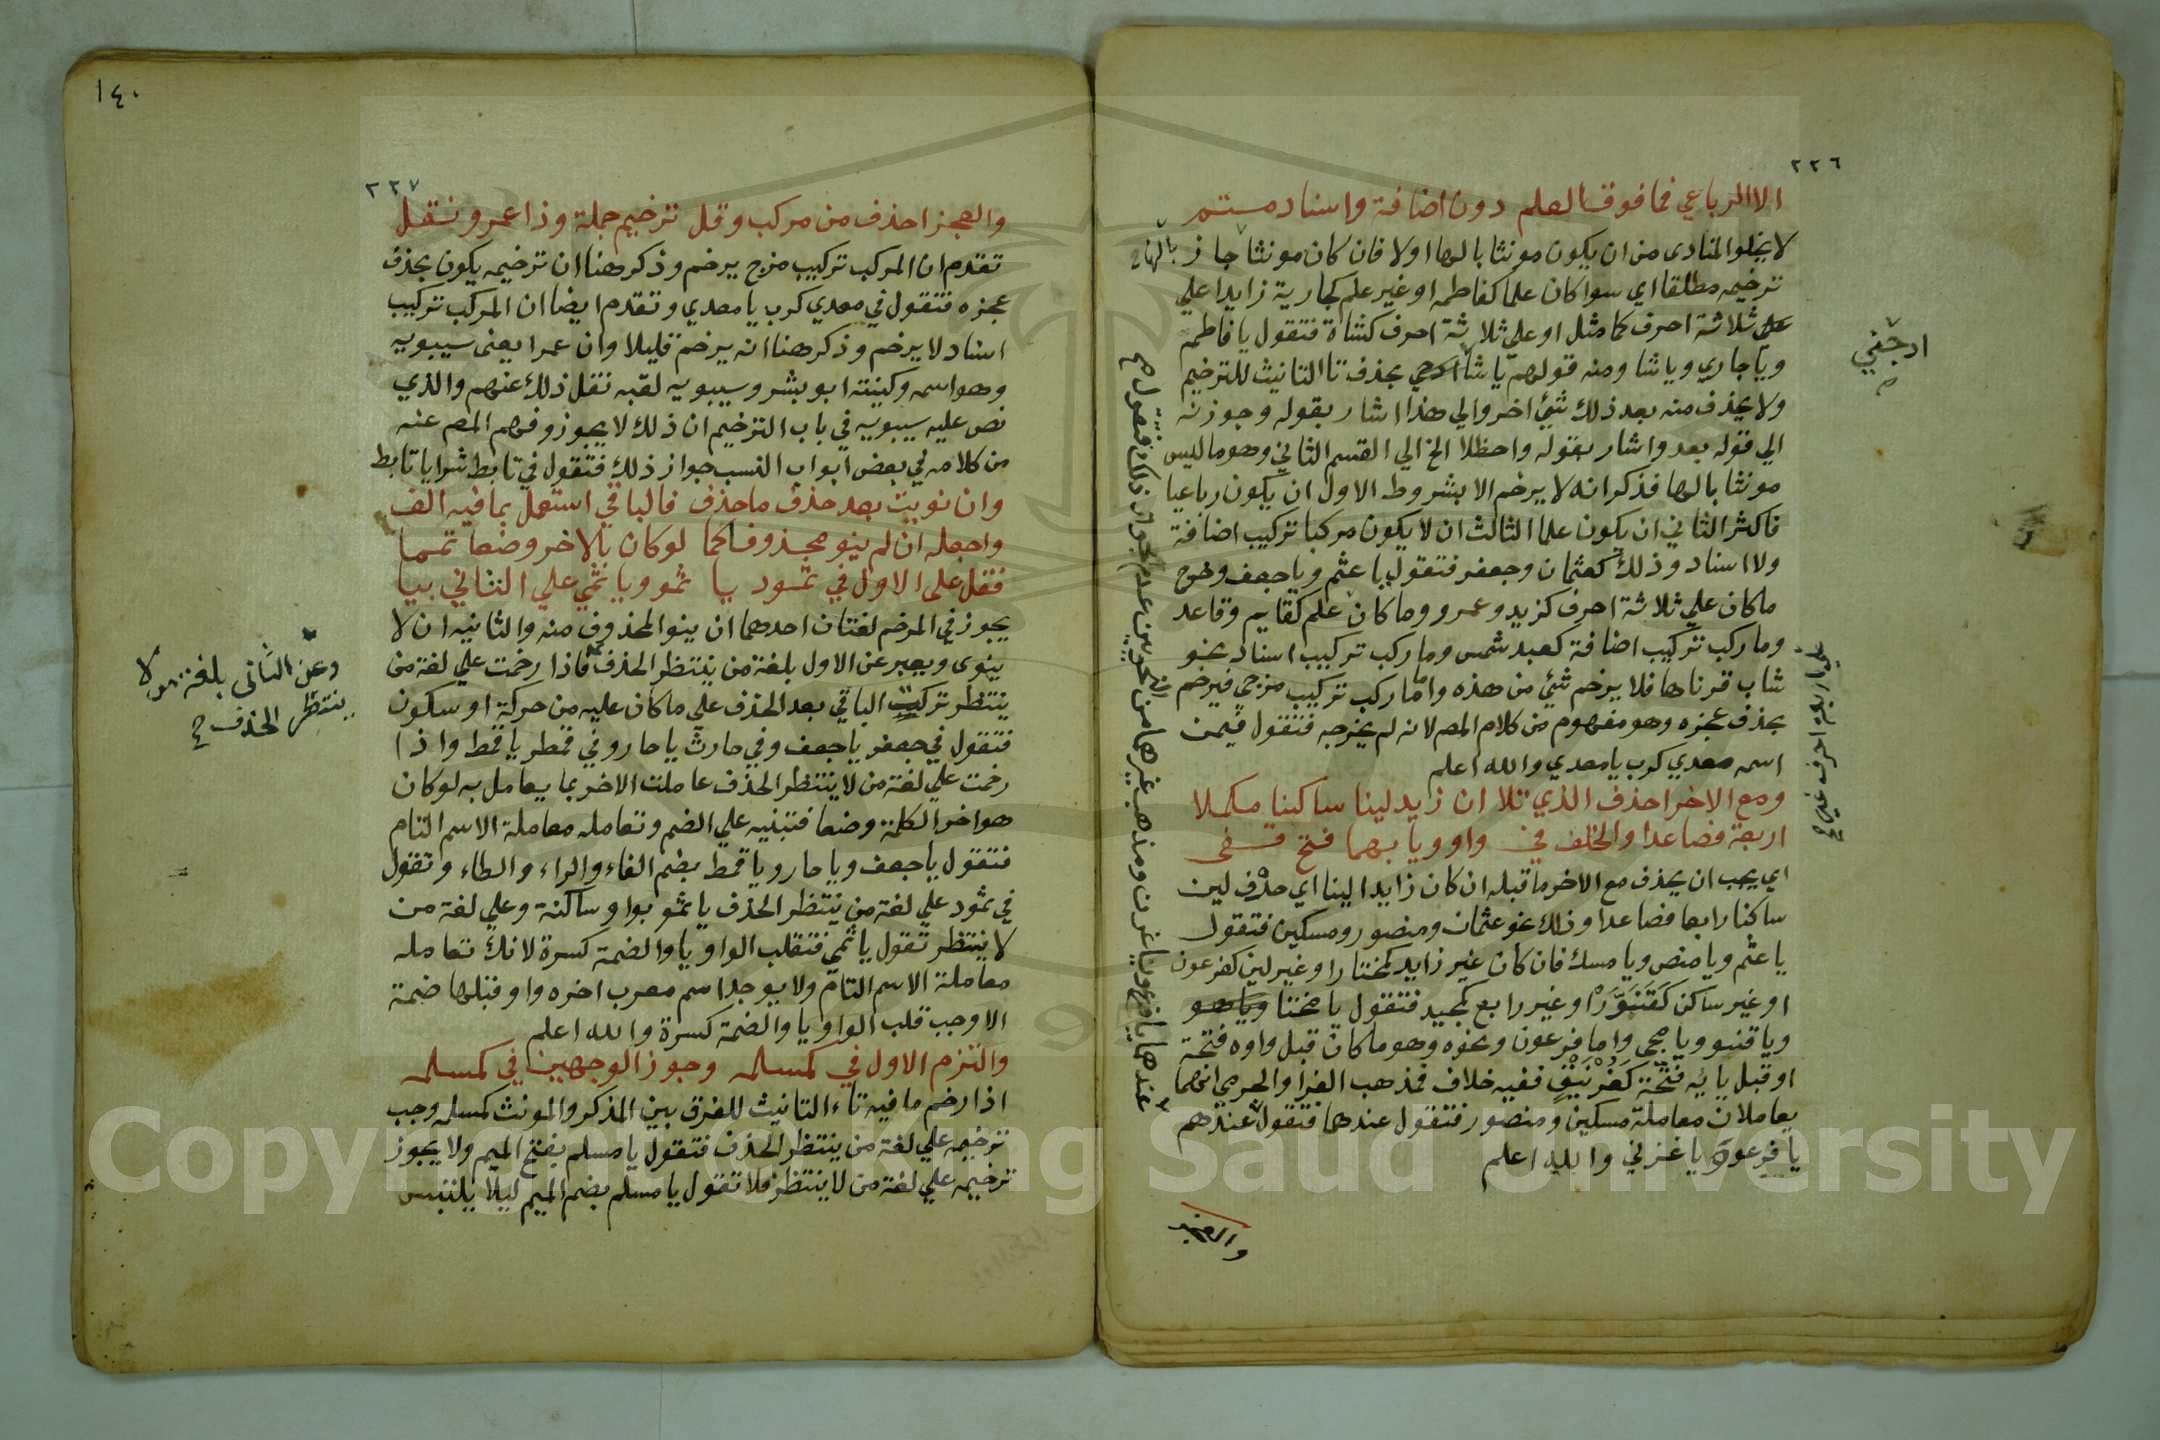 ٢٢٦
الا الرباعي فما فوق العلم دون اضافة واسناد متم
لا يخلو المنادى من ان يكون مونثا بالها اولا فان كان مونثا بالها جاز
ترخيمه مطلقا اي سوا كان علما كفاطمه او غير علم كجارية زايدا علي
علي ثلاثة احرف كما مثل او علي ثلاثة احرف كشاة فتقول يا فاطم
ويا جاري ويا شا ومنه قولهم يا شا بحذف تا التانيث للترخيم
ارجني
ولا يحذف منه بعد ذلك شئ اخر والي هذا اشار بقوله وجوزنه
الي قوله بعد واشار بقوله واحظلا الخ الي القسم الثاني وهو ما ليس
مونثا بالها فذكر انه لا يرخم الا بشروط الاول ان يكون رباعيا
فاكثر الثاني ان يكون علما الثالث ان لا يكون مركبا تركيب اضافة
ولا اسناد وذلك كعثمان وجعفر فتقول يا عثم ويا جعف وخرج
ما كان علي ثلاثة احرف كزيد وعمرو وما كان علم كقايم وقاعد
وما ركب تركيب اضافة كعبد شمس وما ركب تركيب اسناد نحو
شاب قرناها فلا يرخم شئ من هذه واما ما ركب تركيب مزجي فيرخم
بحذف عجزه وهو مفهوم من كلام المص لانه لم يخرجه فتقول فيمن
اسمه معدي كرب يا معدي والله اعلم
ومع الاخر احذف الذي تلا ان زيد لينا ساكنا مكملا
اربعة فصاعدا والخلف في واو ويا بهما فتح قفى
اي يجب ان يحذف مع الاخر ما قبله ان كان زايدا لينا اي حرف لين
ساكنا رابعا فصاعدا وذلك نحو عثمان ومنصور ومسكين فتقول
يا عثم ويا منص ويا مسك فان كان غير زايد كمختار او غير لين كفرعون
او غير ساكن كقَنَوَّر او غير رابع كمجيد فتقول يا مختا
ويا قنو ويا مجي واما فرعون ونحوه وهو ما كان قبل واوه فتحة
او قبل يايه فتحة كغُرْنَيْق ففيه خلاف فمذهب الفرا والجرمي انهما
يعاملان معاملة مسكين ومنصور فتقول عندهما فتقول عندهم
يا فرعو يا غرني والله اعلم
والعجز
١٤٠
٢٢٧
والعجز احذف من مركب وقل ترخيم جملة وذا عمرو نقل
تقدم ان المركب تركيب مزج يرخم وذكر هنا ان ترخيمه يكون بحذف
عجزه فتقول في معدي كرب يا معدي وتقدم ايضا ان المركب تركيب
اسناد لا يرخم وذكر هنا انه يرخم قليلا وان عمرا يعنى سيبويه
وهو اسمه وكنيته ابو بشر وسيبويه لقبه نقل ذلك عنهم والذي
نص عليه سيبويه في باب الترخيم ان ذلك لا يجوز وفهم المص عنه
من كلامه في بعض ابواب النسب جواز ذلك فتقول في تابط شرا يا تابط
وان نويت بعد حذف ما حذف فالباقي استعمل بما فيه الف
واجعله ان لم ينو محذوف كما لو كان بالاخر وضعا تمما
فقل على الاول في ثمود يا ثمو ويا ثمي علي الثاني بيا
يجوز في المرخم لغتان احدهما ان ينو المحذوف منه والثانيه ان لا
ينوى ويعبر عن الاول بلغة من ينتظر الحذف فاذا رخمت علي لغة من
وعن الثانى بلغة من لا
ينتظر الحذف
ينتظر الباقي بعد الحذف علي ما كان عليه من حركة او سكون
فتقول في جعفر يا جعف وفي حارث يا حار وفي قمطر يا قمط واذا
رخمت علي لغة من لا ينتظر الحذف عاملت الاخر بما يعامل به لو كان
هو اخر الكلمة وضعا فتبنيه علي الضم وتعامله معاملة الاسم التام
فتقول يا جعف ويا حار ويا قمط بضم الفاء والراء والطاء وتقول
في ثمود علي لغة من ينتظر الحذف يا ثمو بواو ساكنة وعلي لغة من
لا ينتظر تقول يا ثمي فتقلب الواو يا والضمة كسرة لانك تعامله
معاملة الاسم التام ولا يوجد اسم معرب اخره واو قبلها ضمة
الا وجب قلب الواو يا والضمة كسرة والله اعلم
والتزم الاول في كمسلمه وجوز الوجهين في كمسلمه
اذا رخم ما فيه تاء التانيث للفرق بين المذكر والمونث كمسلمه وجب
ترخيمه علي لغة من ينتظر الحذف فتقول يا مسلم بفتح الميم ولا يجوز
ترخيمه علي لغة من لا ينتظر فلا تقول يا مسلم بضم الميم ليلا يلتبس
Copyright © King Saud University